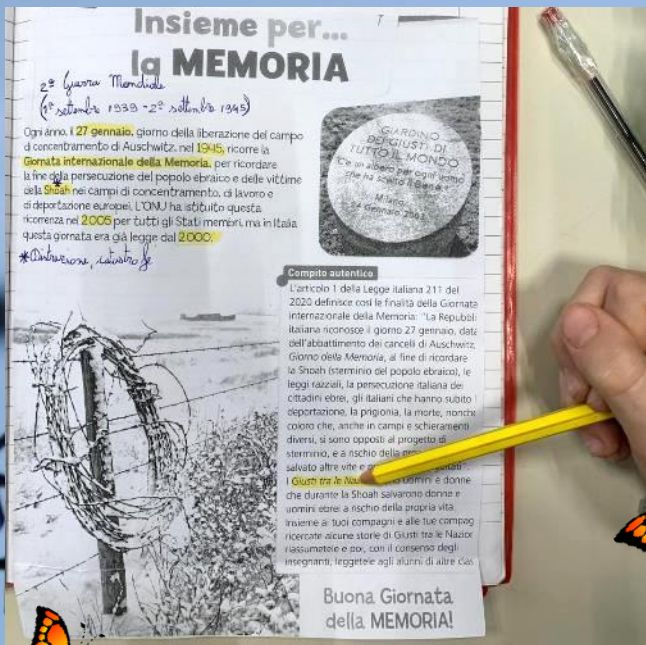 Insieme per...
la MEMORIA
2ª Guerra Mondiale
(1° settembre 1939 - 2 settembre 1945)
Ogni anno, il 27 gennaio, giorno della liberazione del campo
di concentramento di Auschwitz, nel 1945, ricorre la
Giornata internazionale della Memoria, per ricordare
la fine della persecuzione del popolo ebraico e delle vittime
della Shoah nei campi di concentramento, di lavoro e
di deportazione europei. L'ONU ha istituito questa
ricorrenza nel 2005 per tutti gli Stati membri, ma in Italia
questa giornata era già legge dal 2000.
*Distruzione, catastrofe
GIARDINO
DEI GIUSTI DI
TUTTO IL MONDO
C'è un albero per ogni uomo
che ha scelto il Bene
Milano
24 Gennaio 2003
Compito autentico
L'articolo 1 della Legge italiana 211 del
2020 definisce così le finalità della Giornata
internazionale della Memoria: "La Repubbli
italiana riconosce il giorno 27 gennaio, data
dell'abbattimento dei cancelli di Auschwitz,
Giorno della Memoria, al fine di ricordare
la Shoah (sterminio del popolo ebraico), le
leggi razziali, la persecuzione italiana dei
cittadini ebrei, gli italiani che hanno subito l
deportazione, la prigionia, la morte, nonché
coloro che, anche in campi e schieramenti
diversi, si sono opposti al progetto di
sterminio, e a rischio della
salvato altre vite e
I Giusti tra le Naz uomini e donne
che durante la Shoah salvarono donne e
uomini ebrei a rischio della propria vita.
Insieme ai tuoi compagni e alle tue compag
ricercate alcune storie di Giusti tra le Nazion
riassumetele e poi, con il consenso degli
insegnanti, leggetele agli alunni di altre clas
Buona Giornata
della MEMORIA!